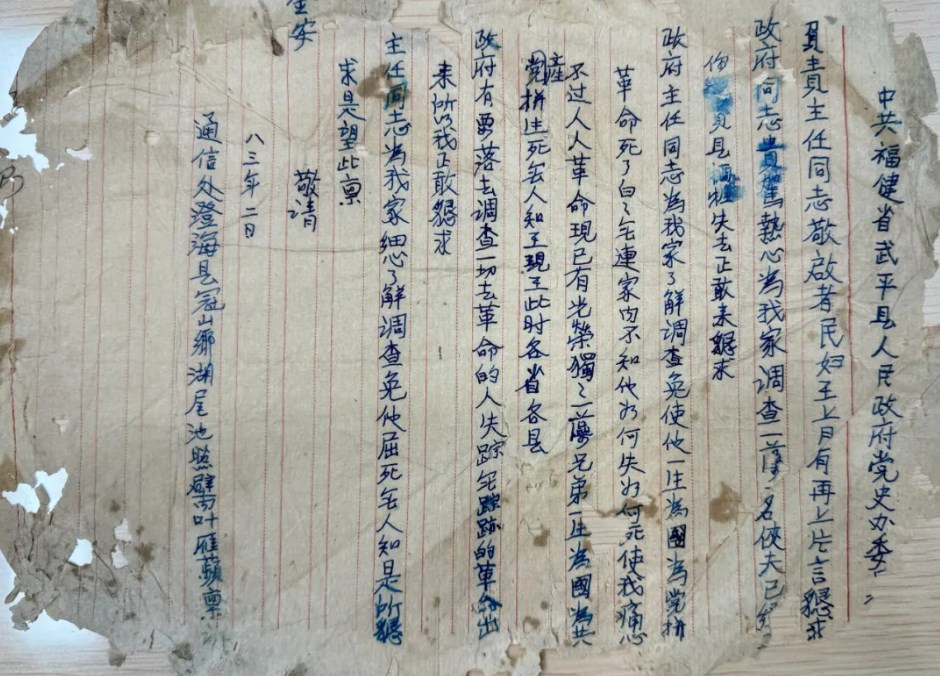 中共福健省武平县人民政府党史办委
負責主任同志敬啟者民妇王上月有再上片言懇求
政府同志貴駕熱心为我家调查一 名侠夫已
份 县 失去正敢来懇求
政府主任同志為我家了解调查免使他一生為國為党拼
革命死了白々 連家内不知他为何失为何死使我痛心
不过人人革命現已有光榮獨々一 兄弟一生為國為共
產党拼生死 人知 現 此时各省各县
政府有要落去调查一切去革命的人失踪 踪跡的革命出
来所以我正敢懇求
主任同志為我家细心了解调查免他屈死 人知是所懇
求是望此禀
敬请
金安
八三年二日
通信处澄海县冠山鄉湖尾池照壁 叶雁 禀